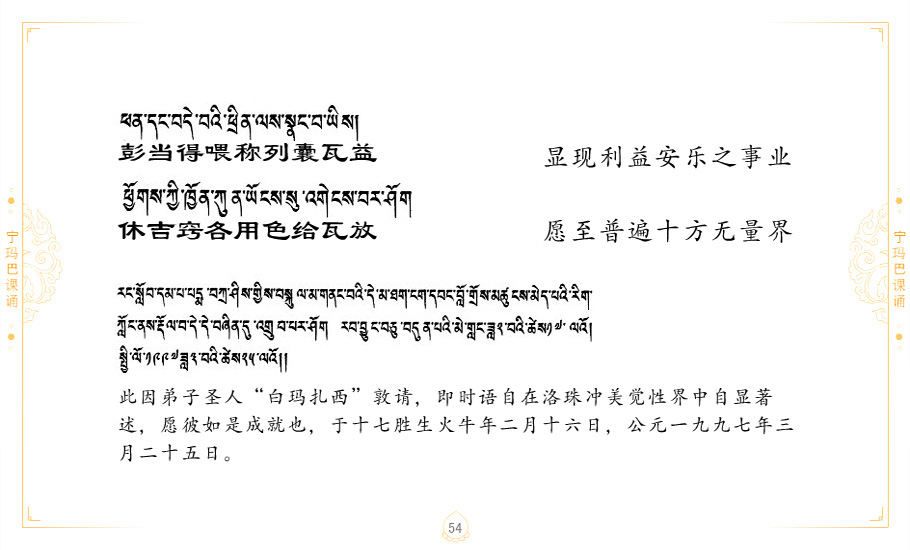 ཕན་དང་བདེ་བའི་ཕྲིན་ལས་སྣང་བ་ཡིས།
彭当得喂称列囊瓦益
显现利益安乐之事业
ཕྱོགས་ཀྱི་ཁྱོན་ཀུན་ཡོངས་སུ་འགེངས་བར་ཤོག
休吉窍各用色给瓦放
愿至普遍十方无量界
རང་སློབ་དམ་པ་པདྨ་བཀྲ་ཤིས་ཀྱིས་བསྐུལ་མ་གནང་བའི་དེ་མ་ཐག་ངག་དབང་བློ་གྲོས་མཚུངས་མེད་པའི་རིག་
ཀློང་ནས་རྡོལ་བ་དེ་དེ་བཞིན་དུ་འགྲུབ་པར་ཤོག རབ་བྱུང་བཅུ་བདུན་པའི་མེ་གླང་ཟླ༢་བའི་ཚེས༡༦་ལའོ།
སྤྱི་ལོ་༡༩༩༧ཟླ༣་བའི་ཚེས༢༥་ལའོ།།
此因弟子圣人“白玛扎西”敦请，即时语自在洛珠冲美觉性界中自显著
述，愿彼如是成就也，于十七胜生火牛年二月十六日，公元一九九七年三
月二十五日。
宁玛巴课诵
宁玛巴课诵
54